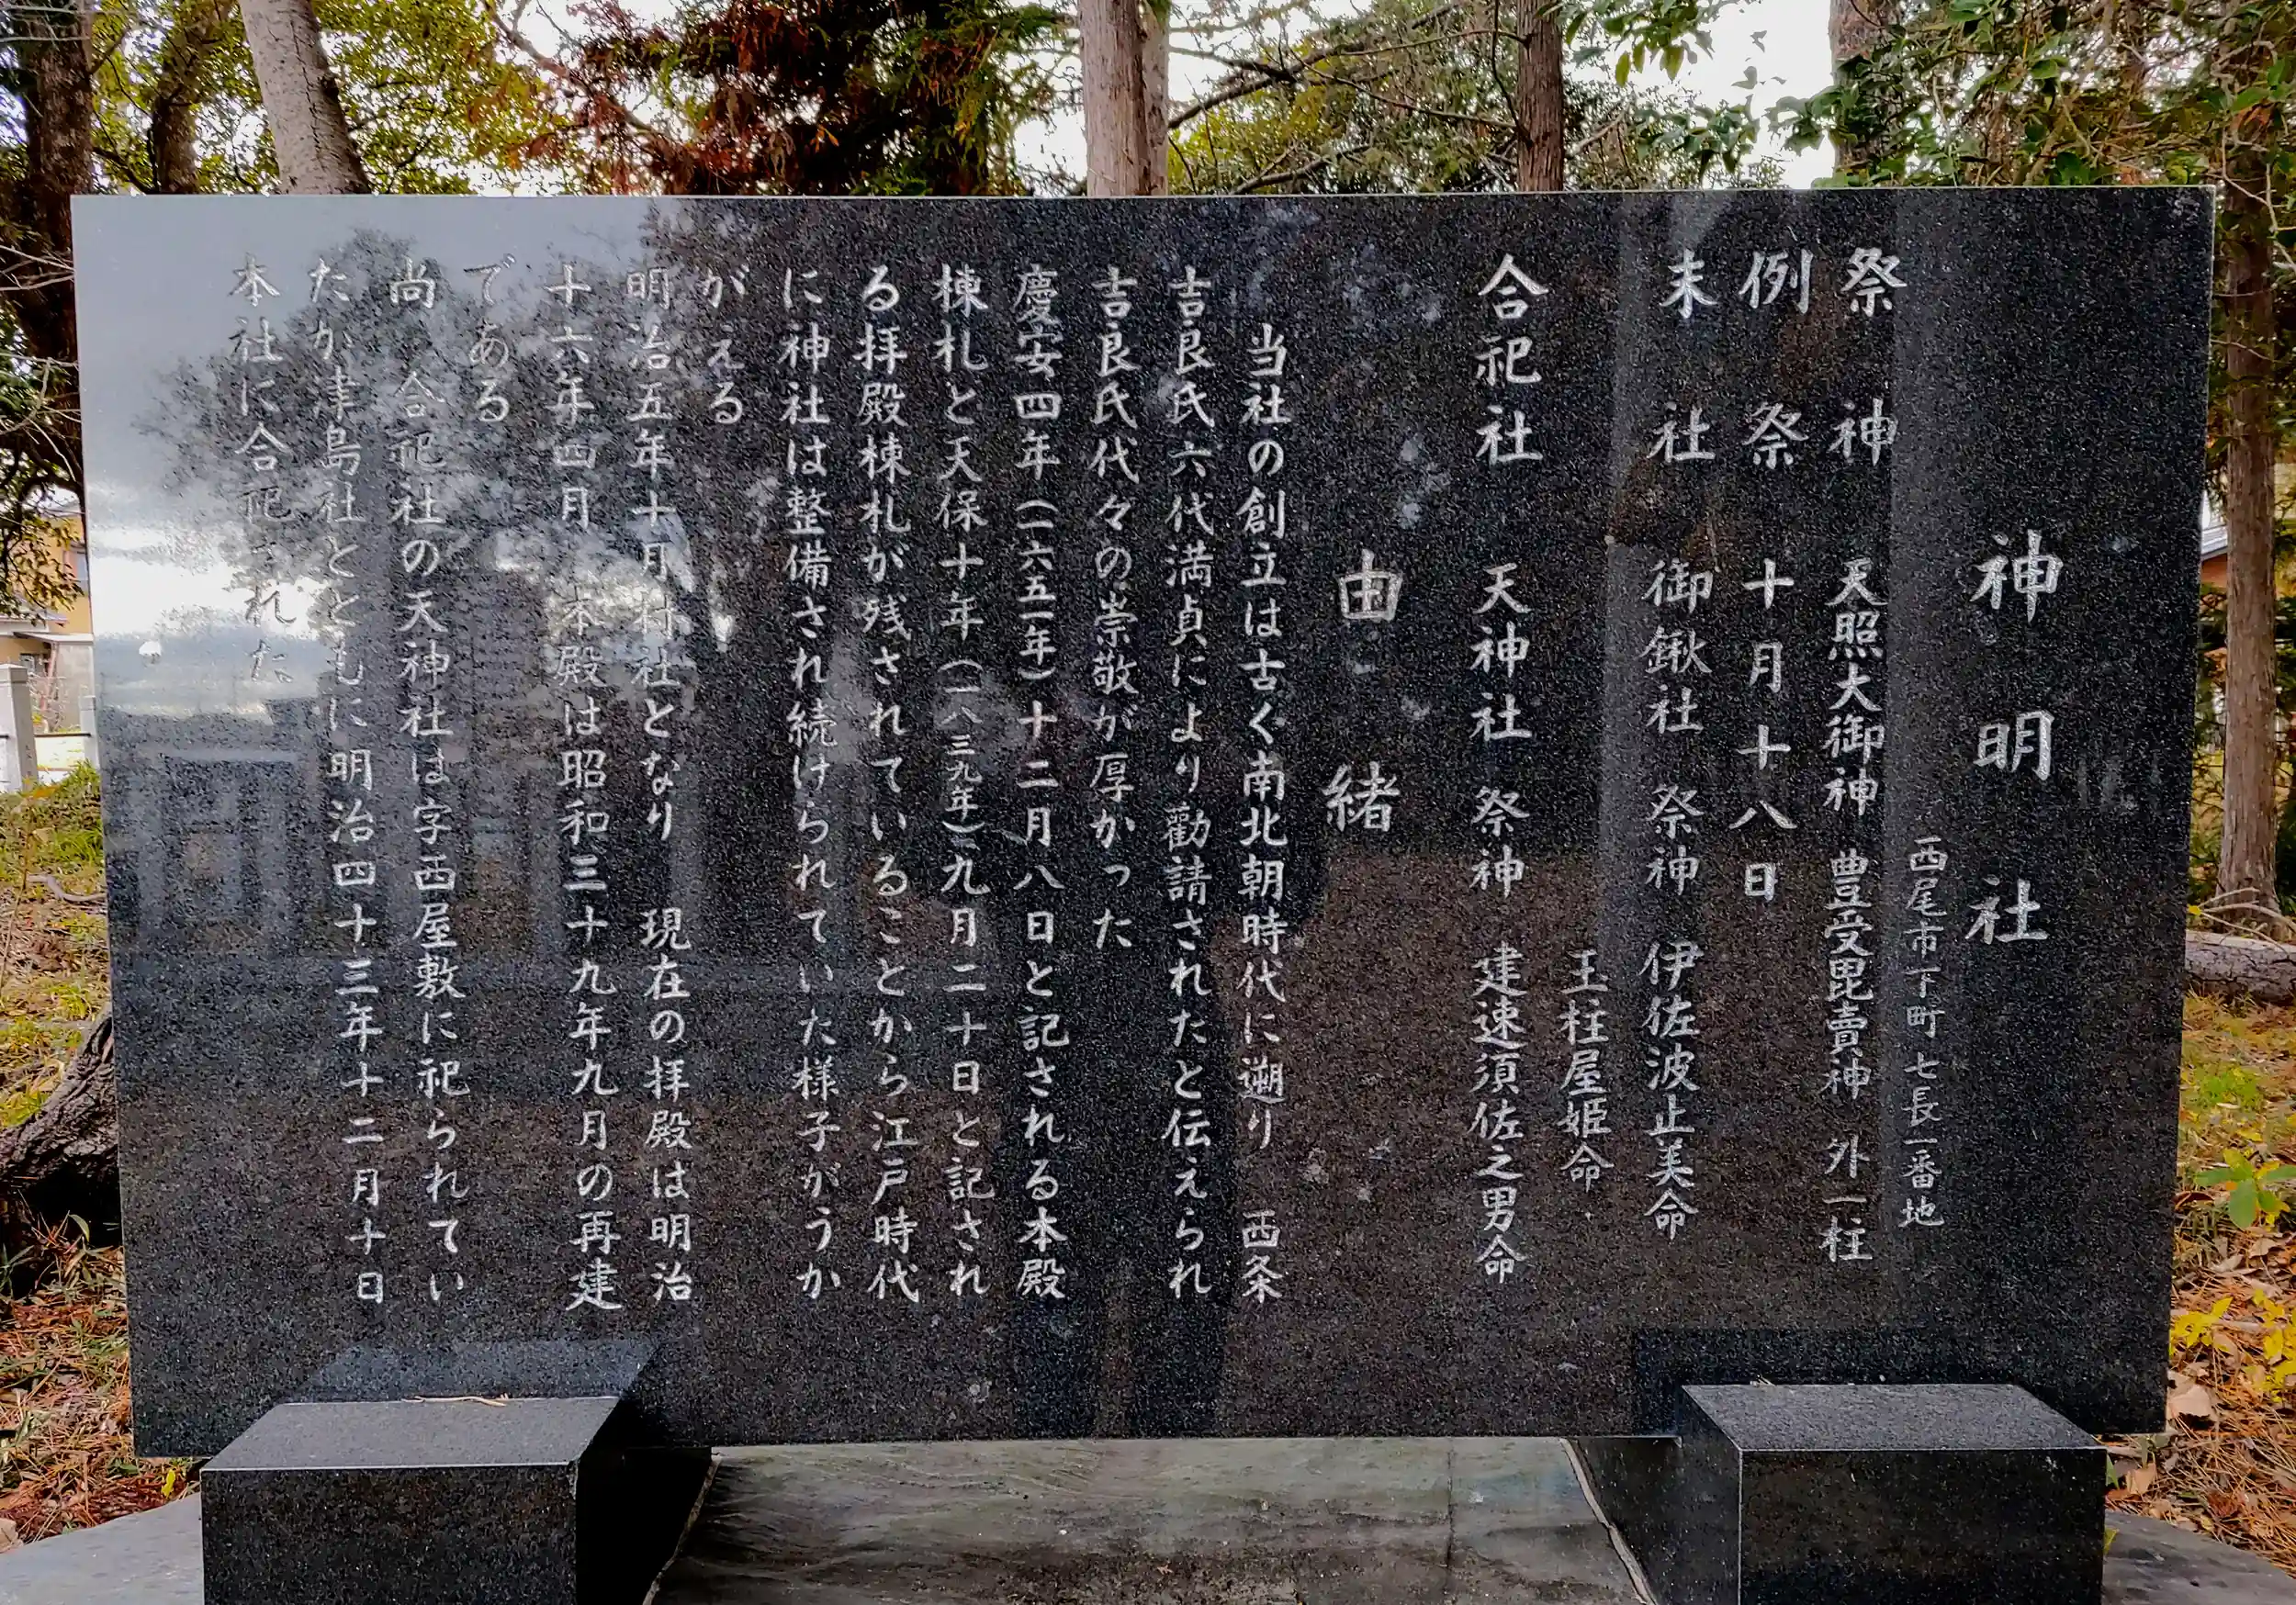 神明社
西尾市下町七長一番地
祭神 天照大御神 豊受毘賣神 外一柱
例祭 十月十八日
末社 御鍬社 祭神 伊佐波止美命
玉柱屋姫命
合祀社 天神社 祭神 建速須佐之男命
由緒
当社の創立は古く南北朝時代に遡り 西条
吉良氏六代満貞により勸請されたと伝えられ
吉良氏代々の崇敬が厚かった
慶安四年(一六五一年)十二月八日と記される本殿
棟札と天保十年(一八三九年)九月二十日と記され
る拝殿棟札が残されていることから江戸時代
に神社は整備され続けられていた様子がうか
がえる
明治五年十月村社となり 現在の拝殿は明治
十六年四月 本殿は昭和三十九年九月の再建
である
尚 合祀社の天神社は字西屋敷に祀られてい
たが津島社とともに明治四十三年十二月十日
本社に合祀された